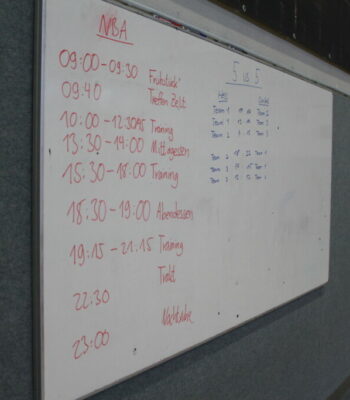 NBA
09:00-09:30 Frühstück
09:40 Treffen Zelt
10:00 - 12:30 Training
13:30-14:00 Mittagessen
15:30-18:00 Training
18:30-19:00 Abendessen
19:15-21:15 Training
22:30
23:00 Nachtruhe
5 vs 5
Team 1 Team 2
Team 1 Team 3
Team 2 Team 3
Team 2 Team 1
Team 3
Team 3